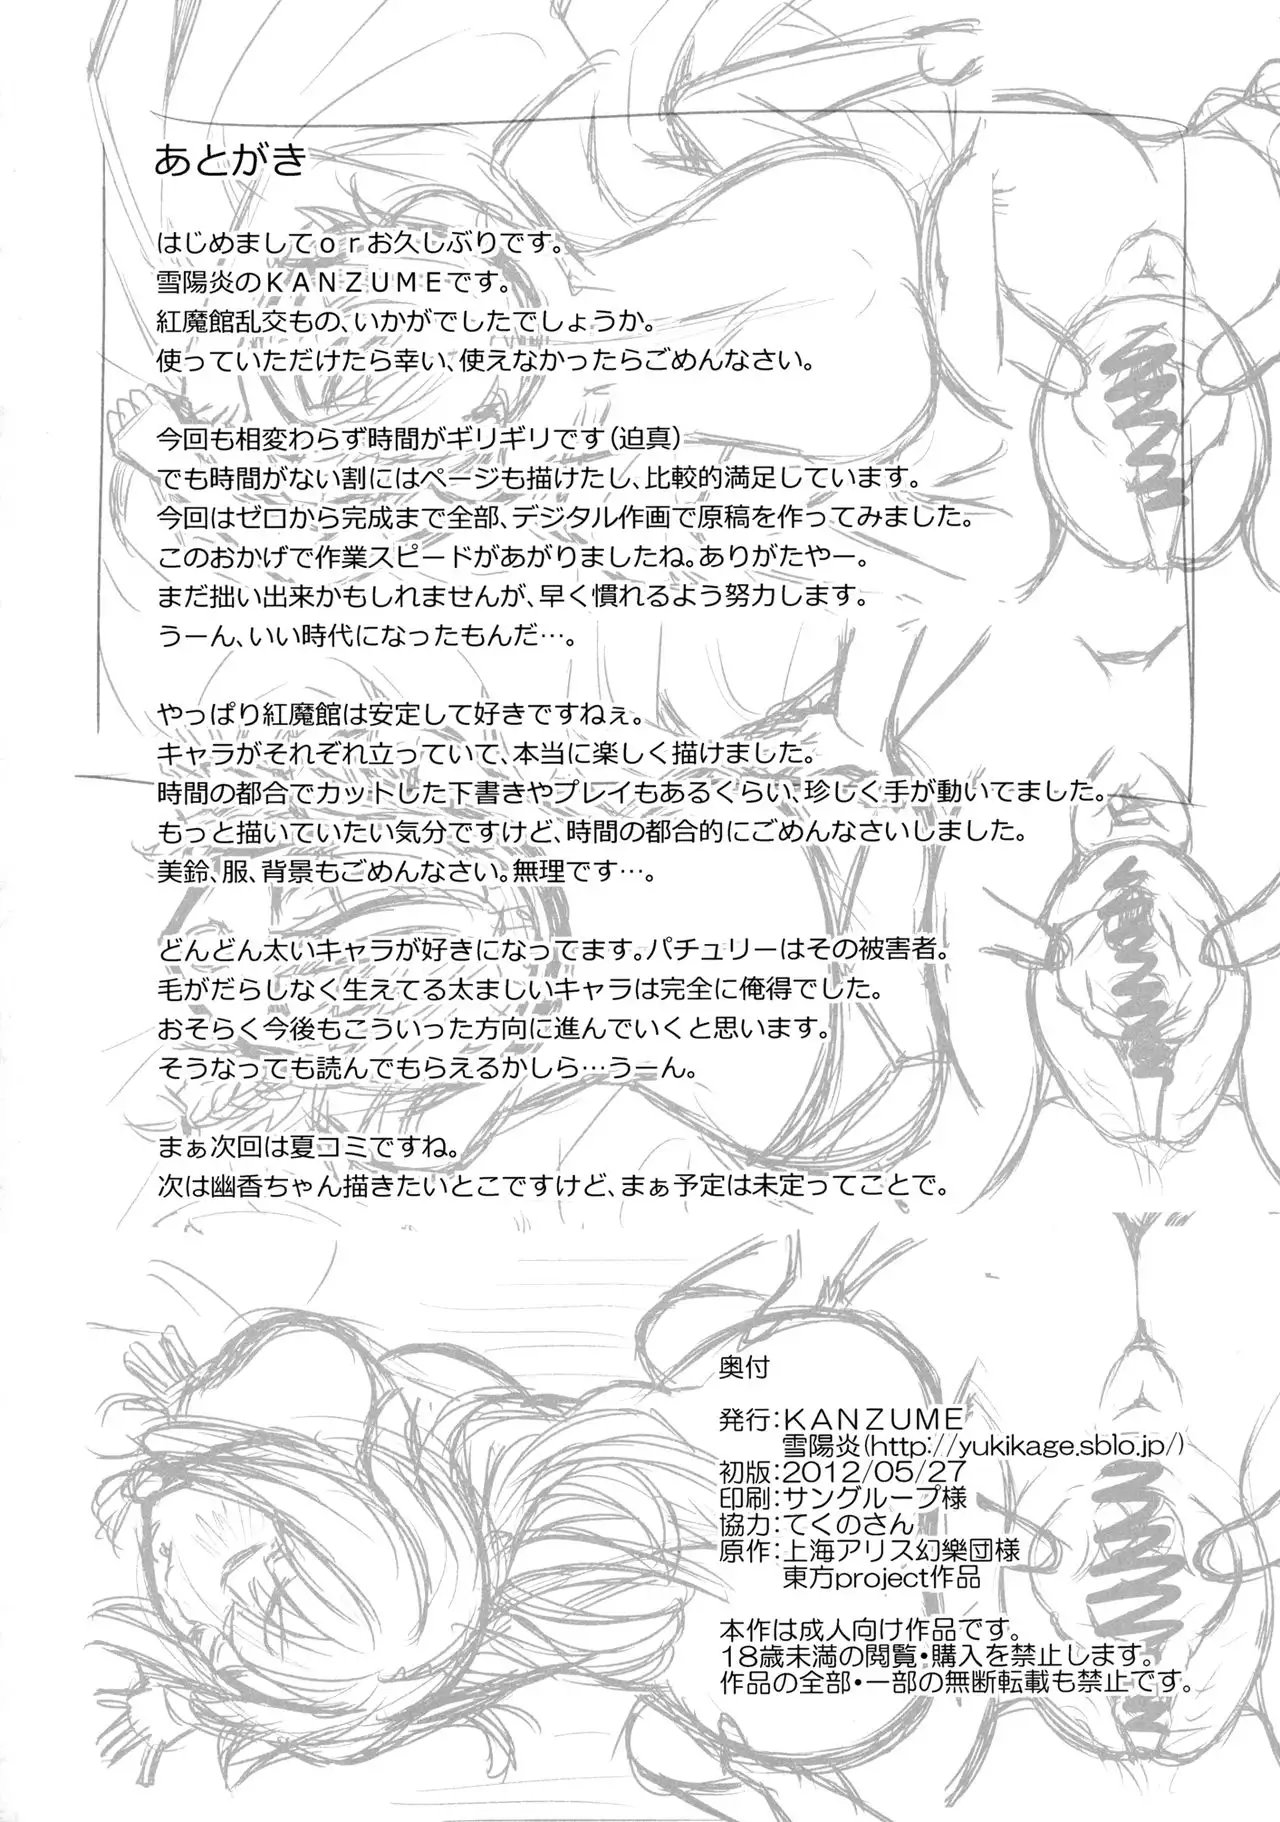 あとがき
はじめましてｏｒお久しぶりです。
雪陽炎のＫＡＮＺＵＭＥです。
紅魔館乱交もの、いかがでしたでしょうか。
使っていただけたら幸い、使えなかったらごめんなさい。
今回も相変わらず時間がギリギリです（迫真）
でも時間がない割にはページも描けたし、比較的満足しています。
今回はゼロから完成まで全部、デジタル作画で原稿を作ってみました。
このおかげで作業スピードがあがりましたね。ありがたやー。
まだ拙い出来かもしれませんが、早く慣れるよう努力します。
うーん、いい時代になったもんだ…。
やっぱり紅魔館は安定して好きですねぇ。
キャラがそれぞれ立っていて、本当に楽しく描けました。
時間の都合でカットした下書きやプレイもあるくらい、珍しく手が動いてました。
もっと描いていたい気分ですけど、時間の都合的にごめんなさいしました。
美鈴、服、背景もごめんなさい。無理です…。
どんどん太いキャラが好きになってます。パチュリーはその被害者。
毛がだらしなく生えてる太ましいキャラは完全に俺得でした。
おそらく今後もこういった方向に進んでいくと思います。
そうなっても読んでもらえるかしら…うーん。
まぁ次回は夏コミですね。
次は幽香ちゃん描きたいとこですけど、まぁ予定は未定ってことで。
奥付
発行：ＫＡＮＺＵＭＥ
雪陽炎(http://yukikage.sblo.jp/)
初版：2012/05/27
印刷：サングループ様
協力：てくのさん
原作：上海アリス幻樂団様
東方project作品
本作は成人向け作品です。
18歳未満の閲覧・購入を禁止します。
作品の全部・一部の無断転載も禁止です。